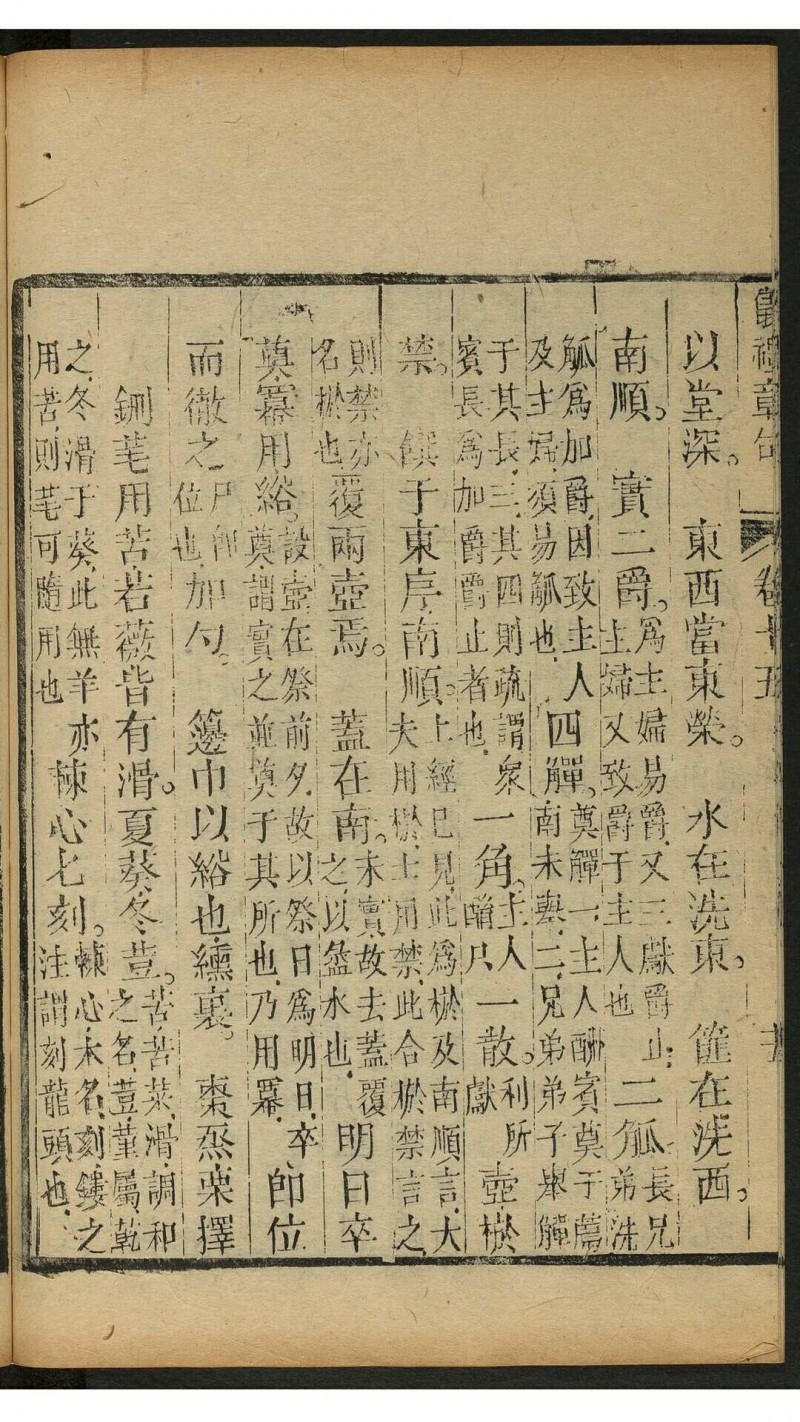 儀禮章句 卷十五
以堂深。東西當東榮。水在洗東。篚在洗西。
南順。實二爵。爲主婦易爵,又三獻爵止,主婦又致爵于主人也二觚長兄弟洗
觚爲加爵,因致主人及主婦,須易觚也四觶。奠觶一,主人酬賓奠于薦南未舉,二,兄弟弟子舉觶
于其長,三,其四則疏謂衆賓長爲加爵爵止者也一角。主人酳尸一散。利所獻壺棜
禁。饌于東序,南順。上經已見,此爲棜及南順言,大夫用棜,士用禁,此合棜禁言之,
則禁亦名棜也覆兩壺焉。蓋在南。未實故去蓋覆之,以盝水也,明日卒
奠,冪用綌。設壺在祭前夕,故以祭日爲明日,卒奠,謂實之並奠于其所也,乃用冪,即位
而徹之尸即位也加勺。籩巾以綌也,纁裏。棗烝栗擇
鉶芼用苦,若薇皆有滑。夏葵冬荁。苦,苦荼,滑,調和之名,荁,堇屬,乾
之,冬滑于葵,此無羊亦用苦,則芼可隨用也棘心匕刻。棘心,木名,刻,鏤之,注謂刻龍頭也,